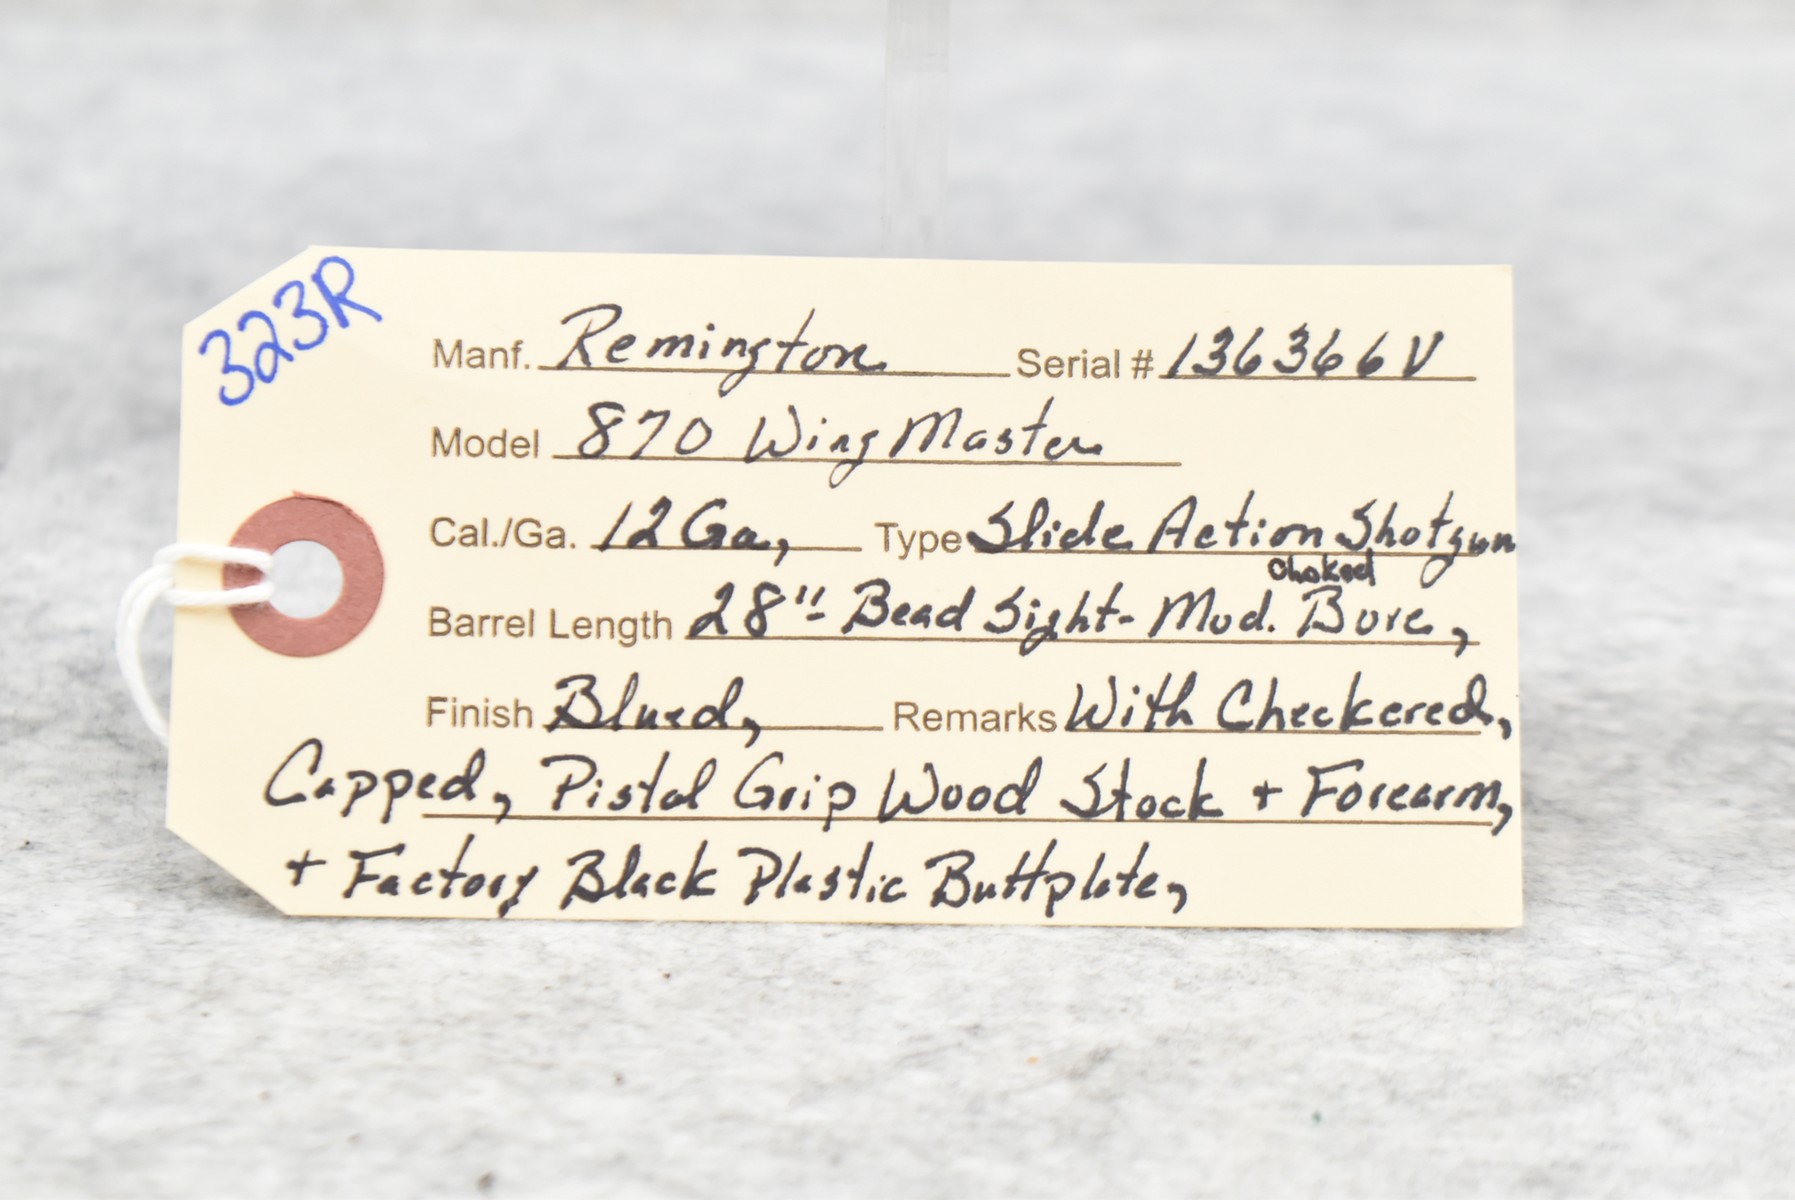 323R
Manf. Remington Serial # 136366V
Model 870 WingMaster
Cal./Ga. 12 Ga, Type Slide Action Shotgun
Choked
Barrel Length 28"- Bead Sight- Mod. Bore,
Finish Blued, Remarks With Checkered,
Capped, Pistol Grip Wood Stock + Forearm,
+ Factory Black Plastic Buttplate,